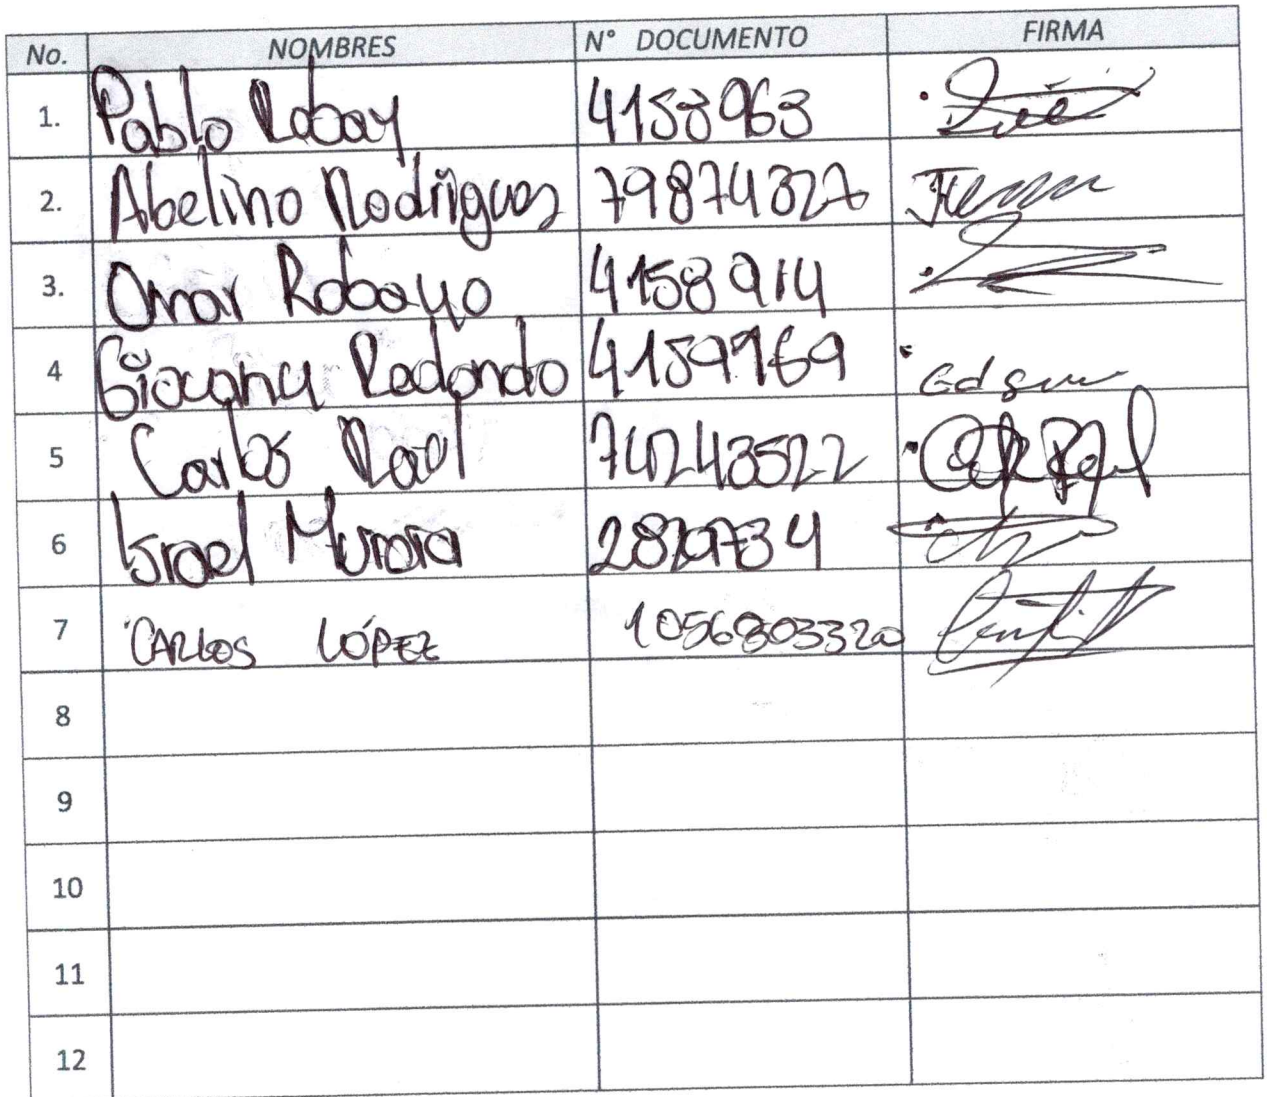 No. NOMBRES N° DOCUMENTO FIRMA
1. Pablo Robay 4158963
2. Abelino Rodrigues 79874327
3. Omar Robayo 4158914
4 Giovany Redondo 4159969
5 Carlos Raul 74243522
6 Israel Murcia
7 CARLOS LÓPEZ 1056803320
8
9
10
11
12